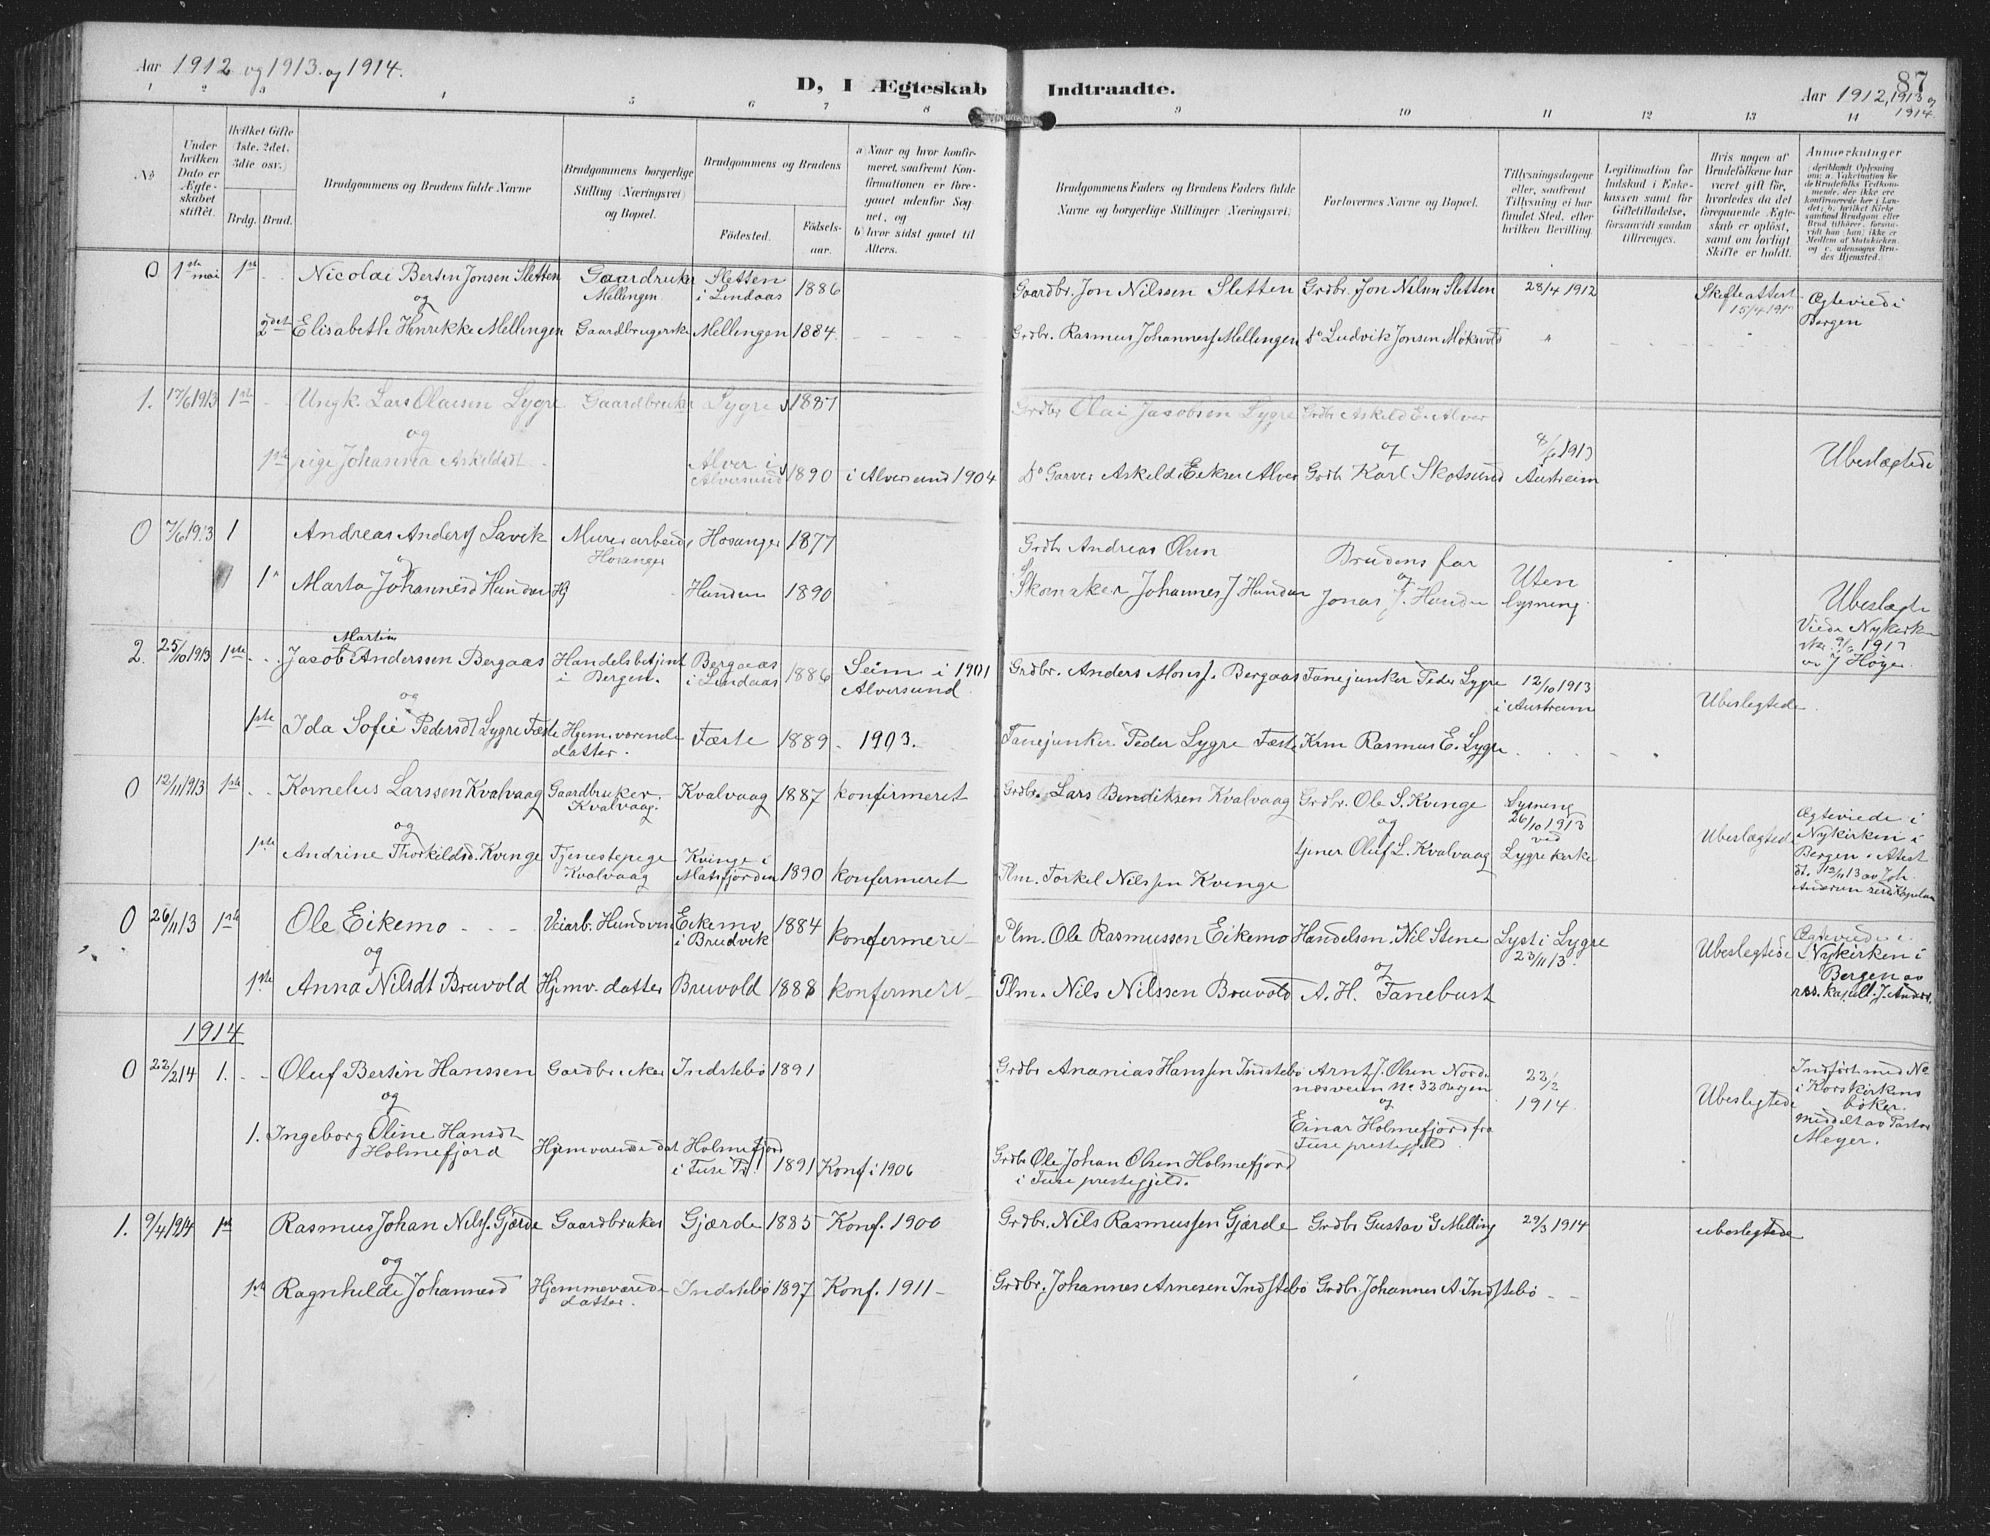 Aar 1912 og 1913. og 1914.
D, I Ægteskab Indtraadte.
87
Aar 1912, 1913 og 1914.
1 2 3 4 5 6 7 8 9 10 11 12 13 14
No
Under hvilken Dato er Ægteskabet stiftet.
Hvilket Gifte 1ste. 2det. 3die osv.
Brdg. Brud.
Brudgommens og Brudens fulde Navne
Brudgommens borgerlige Stilling (Næringsvei) og Bopæl.
Brudgommens og Brudens
Fødested.
Fødselsaar.
a) Naar og hvor konfirmeret, saafremt Konfirmationen er foregaaet udenfor Sognet, og
b) hvor sidst gaaet til Alters.
Brudgommens Faders og Brudens Faders fulde Navne og borgerlige Stillinger (Næringsvei)
Forlovernes Navne og Bopæl.
Tillysningsdagene eller, saafremt Tillysning ei har fundet Sted, efter hvilken Bevilling.
Legitimation for Indskud i Enkekassen samt for Giftetilladelse, forsaavidt saadan tiltrænges.
Hvis nogen af Brudefolkene har været gift før, hvorledes da det foregaaende Ægteskab er opløst, samt om lovligt Skifte er holdt.
Anmerkninger
0 1ste mai 1ste Nicolai Bertin Jonsen Sletten Gaardbruker Mellingen Sletten i Lindaas 1886 Gaardbr. Jon Nilssen Sletten Grdbr. Jon Nilsen Sletten 28/4 1912 Skifteattest 15/4 191 Ægteviede i Bergen
og
2det Elisabeth Henrikke Mellingen Gaardbrugerske Mellingen 1884. Grdbr. Rasmus Johannesf Mellingen Do Ludvik Jonsen "
1. 17/6 1913 1ste Ungk. Lars Olaisen Lygre Gaardbruker Lygre 1887 Grdbr Olai Jacobsen Lygre Grdbr Askild E. Alver
og og 8/6 1913
1ste pige Johanna Askildsdt Alver i Alversund 1890 i Alversund 1904 Do Garver Askild Eikser Alver Grdb Karl Skotsund Austreim Ubeslægtede
0 7/6 1913 1 Andreas Andersf Savik Murerarbeid Hosanger Hosanger 1877 Grdbr Andreas Olsen Brudens far
og og
1 Marta Johannesd Hundven Hj Hundven 1890 Skomaker Johannes J Hundven Jonas J. Hundve Uten lysning. Ubeslægte
Viede Nykirke 7/6 1913 av J Høye
2. 25/10 1913 1ste Jacob Martin Anderssen Bergaas Handelsbetjent i Bergen. Bergaas i Lindaas 1886 Seim i 1901 Alversund. Grdbr. Anders Monsf. Bergaas Fanejunker Peder Lygre 12/10 1913 i Austreim Ubeslegtede
og
1ste Ida Sofie Pedersdt Lygre Fæste Hjem.værende datter. Fæste 1889 1903. Fanejunker Peder Lygre Fæste Krm Rasmus E. Lygre
0 12/11 1913 1ste Kornelius Larssen Kvalvaag Gaardbruker. Kvalvaag. Kvalvaag 1887 konfirmeret Grdbr. Lars Bendiksen Kvalvaag Grdbr. Ole S. Kvinge Lysning 26/10 1913 ved Lygre kirke Ubeslægtede Ægteviede i Nykirken i Bergen. Atest dt. 12/11 13 av Joh.
og og
1ste Andrine Thorkildsd. Kvinge Tjenestepige Kvalvaag Kvinge i Matsfjorden 1890 konfermeret Plm. Torkel Nilssen Kvinge tjener Oluf L. Kvalvaag
0 26/11 13 1ste Ole Eikemo Veiarb. Hundven Eikemo i Brudvik 1884 konfermeret Plm. Ole Rasmussen Eikemo Handelsm. Nil Stene Lyst i Lygre 23/11 13. Ubeslegtede Ægteviede i Nykirken i Bergen av res. kapell. J. Anders.
og og
1ste Anna Nilsdt Bruvold Hjemv. datter Bruvold 1888 konfermere Plm. Nils Nilssen Bruvold A. H. Tanebust
1914
0 22/2 14 1. Oluf Bertin Hanssen Gardbruker Indstebø 1891 Grdbr Ananias Hanssen Indstebø Arnt J. Olsen Nordnæsveien No 32 Bergen 22/2 1914. Ubeslegtede Indført med No i Korskirkens bøker. meddelt av Pastor Meyer.
og og
1. Ingeborg Oline Hansdt Holmefjord Hjemværende dat Holmefjord i Fuse Pr. 1891 Konf i 1906 Grdbr Ole Johan Olsen Holmefjord i Fuse prestegjeld. Einar Holmefjord fra Fuse prestegjeld.
1. 9/4 1914 1ste Rasmus Johan Nilsf. Gjerde Gaardbruker Gjærde 1885 Konf. 1900 Grdbr. Nils Rasmussen Gjerde Grdbr Gustav G Melling 29/3 1914 ubeslegtede
og
1ste Ragnhilde Johannesd Hjemmeværende datter. Indstebø 1897 Konf. 1911 Grdbr. Johannes Arnesen Indstebø Grdbr. Johannes A. Indstebø